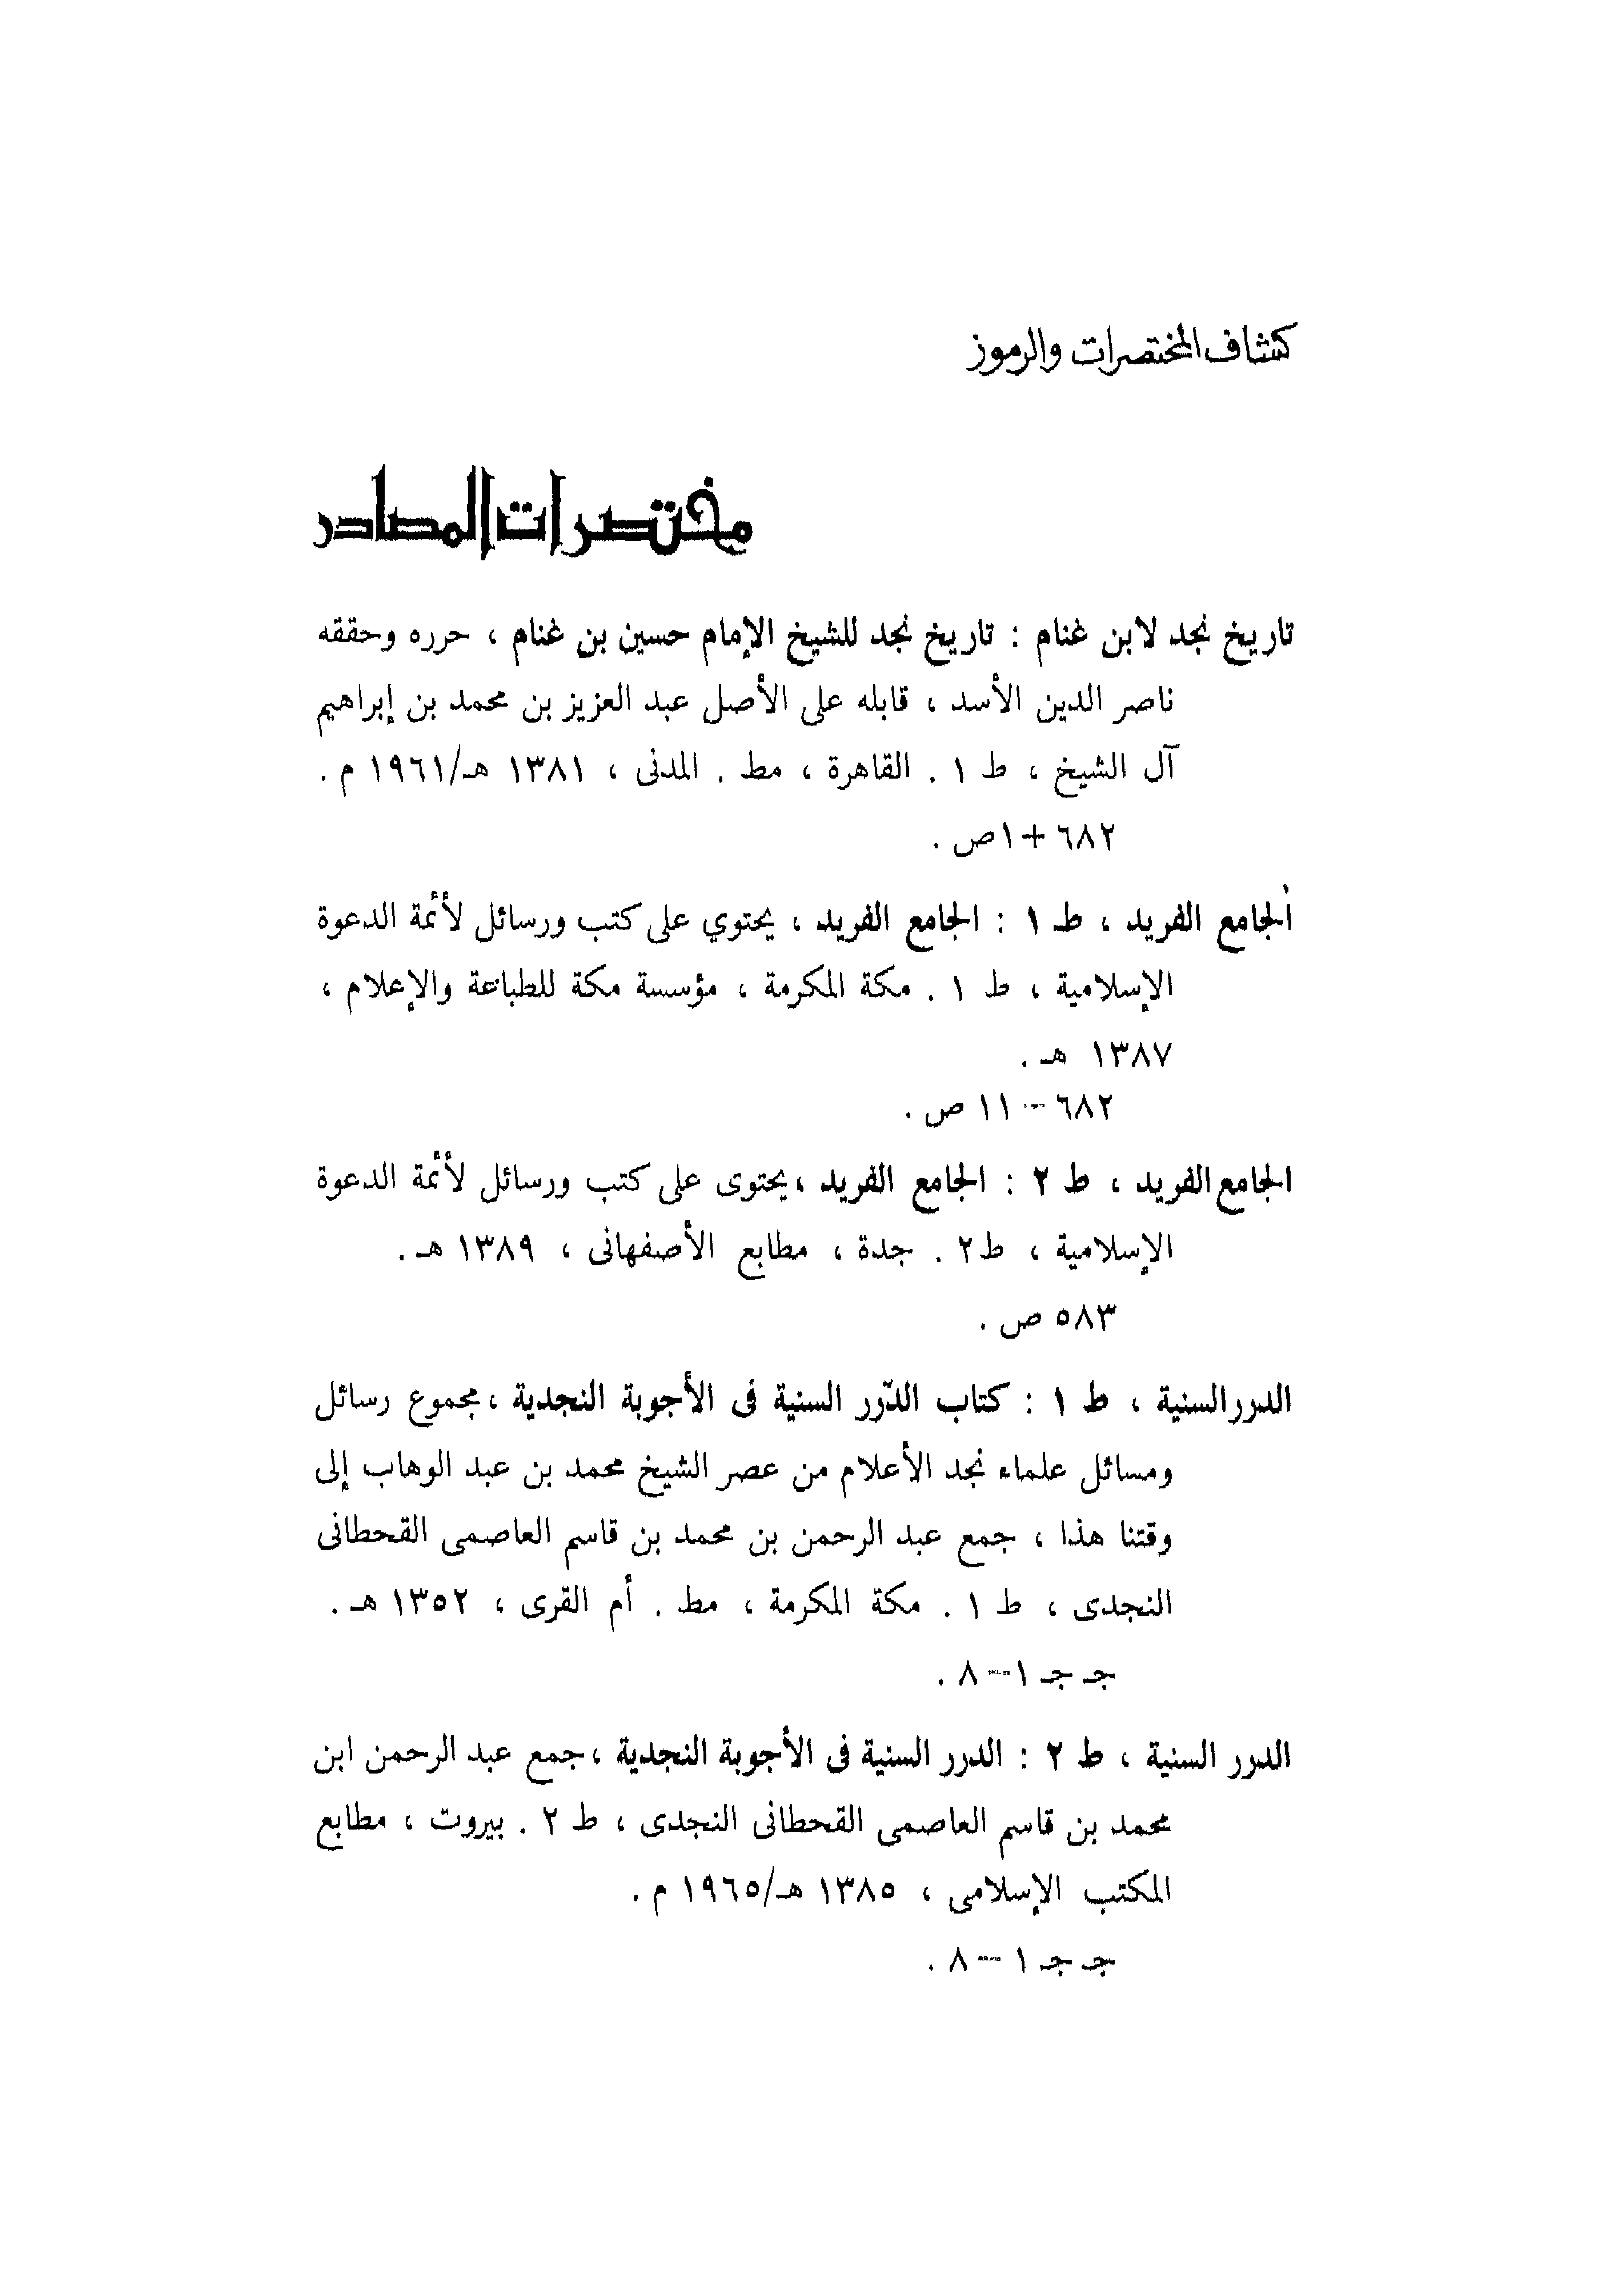 كشاف المختصرات والرموز
مختصرات المصادر
تاريخ نجد لابن غنام : تاريخ نجد للشيخ الإمام حسين بن غنام ، حرره وحققه
ناصر الدين الأسد ، قابله على الأصل عبد العزيز بن محمد بن إبراهيم
آل الشيخ ، ط ١ . القاهرة ، مط . المدنى ، ١٣٨١ هـ/١٩٦١ م .
٦٨٢ +١ص .
الجامع الفريد ، ط ١ : الجامع الفريد ، يحتوي على كتب ورسائل لأئمة الدعوة
الإسلامية ، ط ١ . مكة المكرمة ، مؤسسة مكة للطباعة والإعلام ،
١٣٨٧ هـ .
٦٨٢ - ١١ ص .
الجامع الفريد ، ط ٢ : الجامع الفريد ، يحتوى على كتب ورسائل لأئمة الدعوة
الإسلامية ، ط٢ . جدة ، مطابع الأصفهانى ، ١٣٨٩ هـ .
٥٨٣ ص .
الدرر السنية ، ط ١ : كتاب الدّرر السنية فى الأجوبة النجدية ، مجموع رسائل
ومسائل علماء نجد الأعلام من عصر الشيخ محمد بن عبد الوهاب إلى
وقتنا هذا ، جمع عبد الرحمن بن محمد بن قاسم العاصمى القحطانى
النجدى ، ط ١ . مكة المكرمة ، مط . أم القرى ، ١٣٥٢ هـ .
جـ جـ ١ - ٨ .
الدرر السنية ، ط ٢ : الدرر السنية فى الأجوبة النجدية ، جمع عبد الرحمن ابن
محمد بن قاسم العاصمى القحطانى النجدى ، ط ٢ . بيروت ، مطابع
المكتب الإسلامى ، ١٣٨٥ هـ/١٩٦٥ م .
جـ جـ ١ - ٨ .